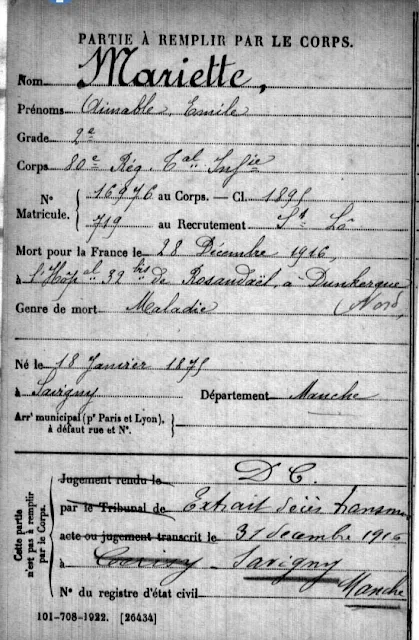 PARTIE À REMPLIR PAR LE CORPS.
Nom Mariette,
Prénoms Aimable, Emile
Grade 2e
Corps 80e Rég. Tal Infie
No Matricule. 16976 au Corps. — Cl. 1895
719 au Recrutement St Lô
Mort pour la France le 28 Décembre 1916,
à l'Hôpal 32 bis de Rosendaël, à Dunkerque
(Nord)
Genre de mort Maladie
Né le 18 Janvier 1875
à Savigny Département Manche
Arrt municipal (pr Paris et Lyon),
à défaut rue et No.
Cette partie n'est pas à remplir par le Corps.
Jugement rendu le D C.
par le Tribunal de Extrait décès transmis
acte ou jugement transcrit le 31 décembre 1916
à Savigny
Manche
No du registre d'état civil
101-708-1922. [26434]